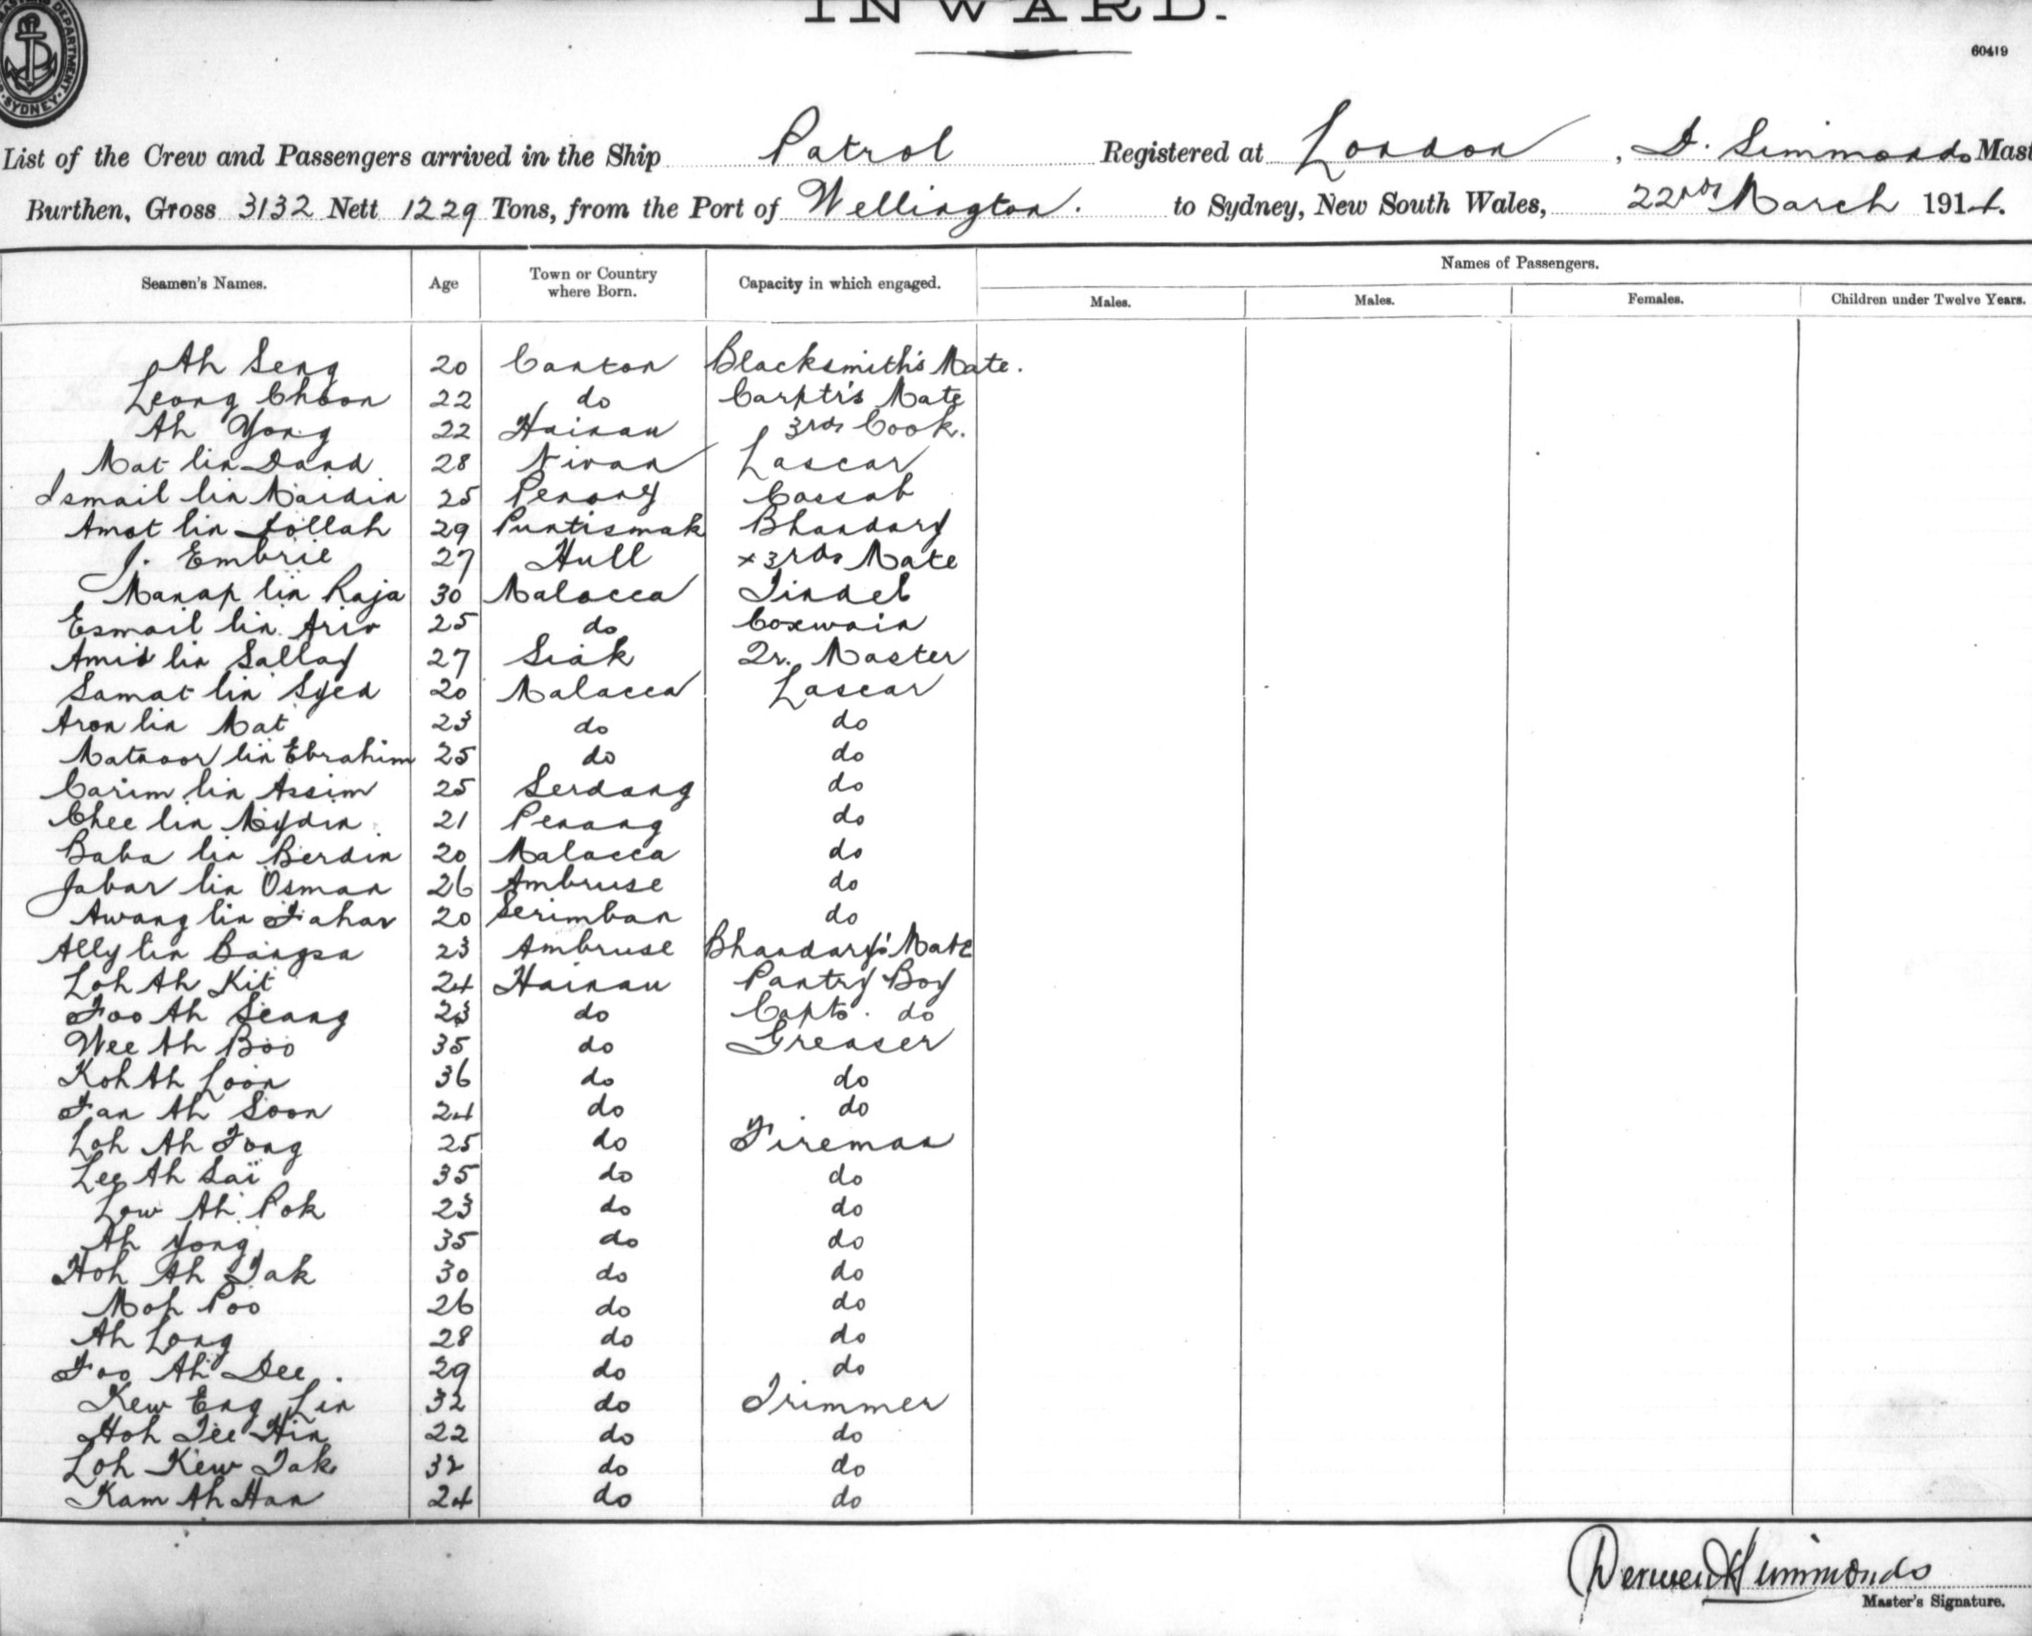 INWARD.
60419
SYDNEY
List of the Crew and Passengers arrived in the Ship Patrol Registered at London, D. Simmonds Mast
Burthen, Gross 3132 Nett 1229 Tons, from the Port of Wellington. to Sydney, New South Wales, 22nd March 1914.
Seamen's Names. Age Town or Country where Born. Capacity in which engaged. Names of Passengers.
Males. Males. Females. Children under Twelve Years.
Ah Seng 20 Canton Blacksmith's Mate.
Leong Choon 22 do Carptr's Mate
Ah Yong 22 Hainan 3rd Cook.
Mat bin Daud 28 Lascar
Ismail bin Maidin 25 Penang Cassab
Amat bin Dollah 29 Puntismak Bhandary
J. Embrie 27 Hull x 3rd Mate
Manap bin Raja 30 Malacca Tindel
Esmail bin 25 do Coxwain
Amid bin Sallay 27 Siak Qr. Master
Samat bin Syed 20 Malacca Lascar
Aron bin Mat 23 do do
Matnoor bin Ebrahim 25 do do
Carim bin Assim 25 Serdang do
Chee bin Mydin 21 Penang do
Baba bin Berdin 20 Malacca do
Jabar bin Osman 26 Ambruse do
Awang bin Tahar 20 Serimban do
Ally bin Bangsa 23 Ambruse Bhandary's Mate
Loh Ah Kit 24 Hainan Pantry Boy
Foo Ah Seang 23 do Capts. do
Wee Ah Boo 35 do Greaser
Koh Ah Loon 36 do do
Tan Ah Soon 24 do do
Loh Ah Fong 25 do Fireman
Lee Ah Sai 35 do do
Low Ah Pok 23 do do
Ah Yong 35 do do
Hoh Ah Tak 30 do do
Moh Poo 26 do do
Ah Long 28 do do
Foo Ah Dee. 29 do do
Kew Eng Lin 32 do Trimmer
Hoh Tee Hin 22 do do
Loh Kew Tak 32 do do
Kam Ah Han 24 do do
Simmonds
Master's Signature.